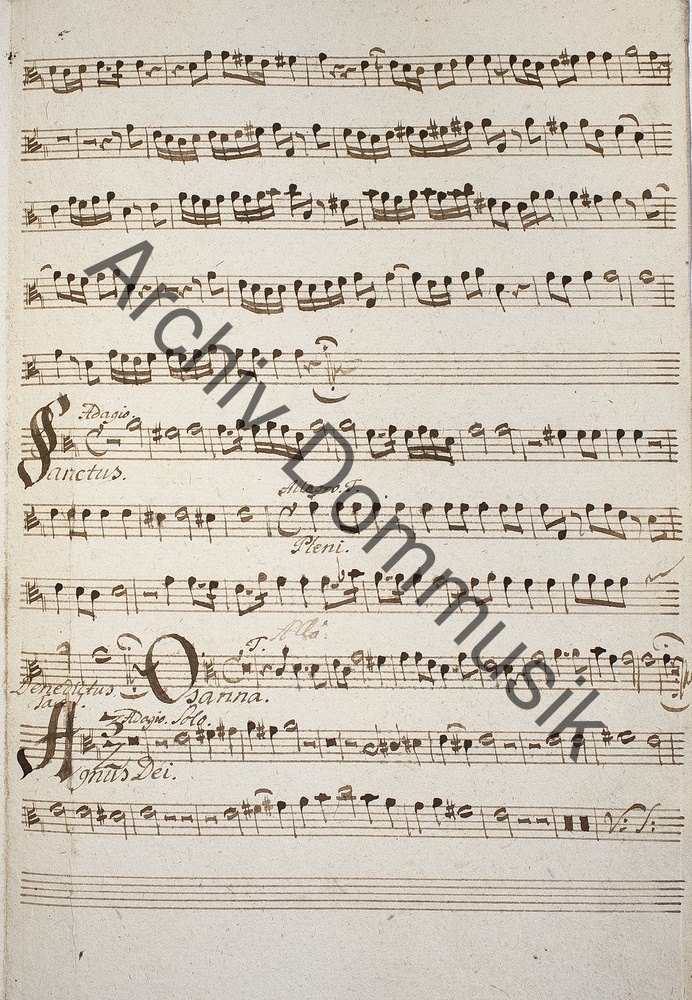 Adagio.
Sanctus.
Allegro. T
Pleni.
Allo:
T.
Benedictus
tacet.
Osanna.
Adagio. Solo.
Agnus Dei.
V: S:
Archiv Dommusik